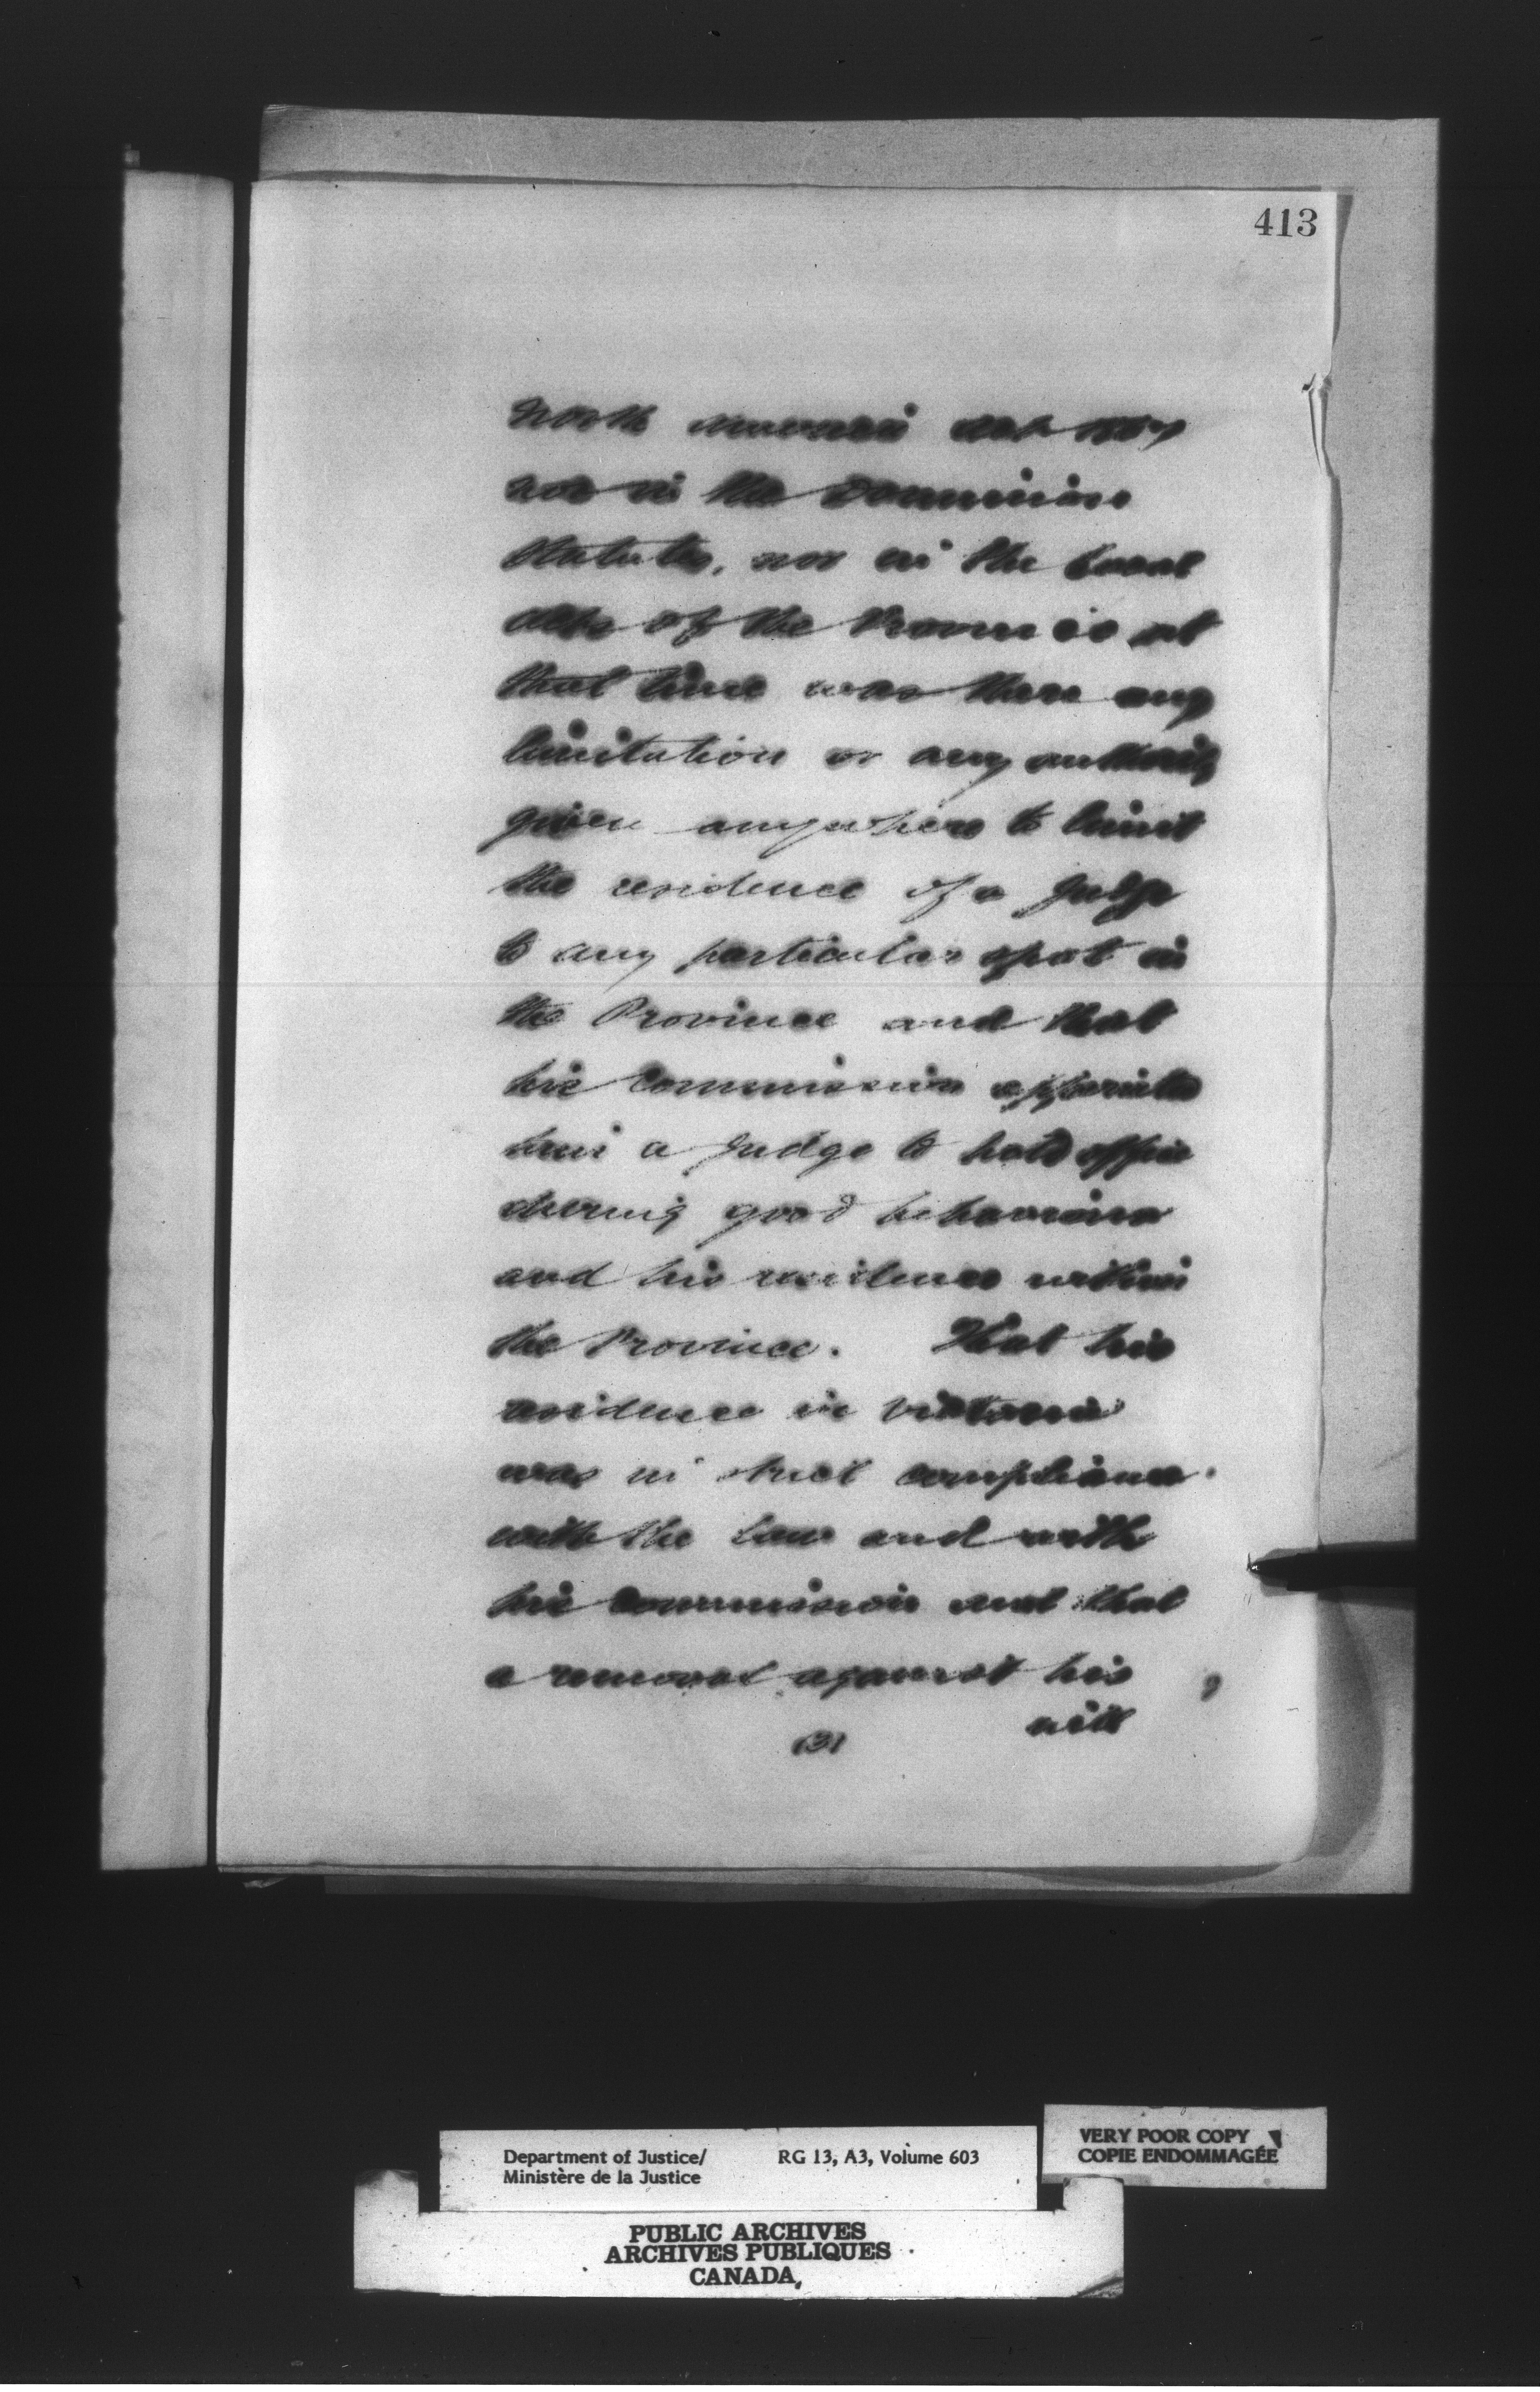 413
North America Act 1867
nor in the Dominion
Statutes, nor in the Local
Acts of the Province at
that time was there any
limitation or any authority
given anywhere to limit
the residence of a Judge
to any particular spot in
the Province and that
his Commission appoints
him a Judge to hold office
during good behaviour
and his residence within
the Province. That his
residence in Victoria
was in strict compliance
with the Law and with
his Commission and that
a removal against his
will
(3)
Department of Justice/ RG 13, A3, Volume 603
Ministère de la Justice
VERY POOR COPY
COPIE ENDOMMAGÉE
PUBLIC ARCHIVES
ARCHIVES PUBLIQUES
CANADA